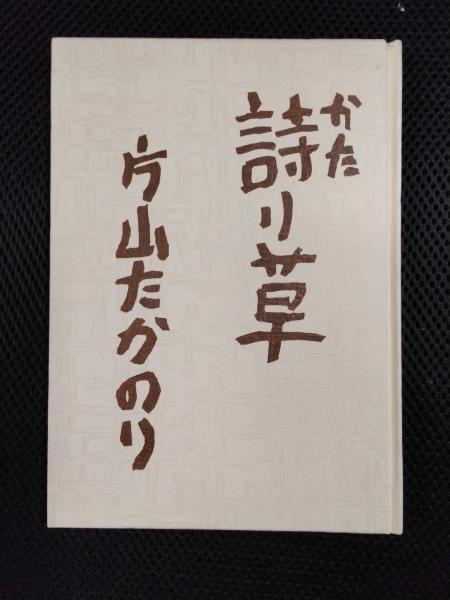 かた
詩り草
片山たかのり